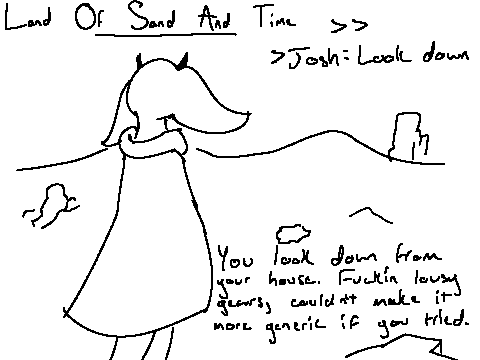 Land Of Sand And Time >>
>Josh: Look down
You look down from
your house. Fuckin lousy
gears, couldn't make it
more generic if you tried.